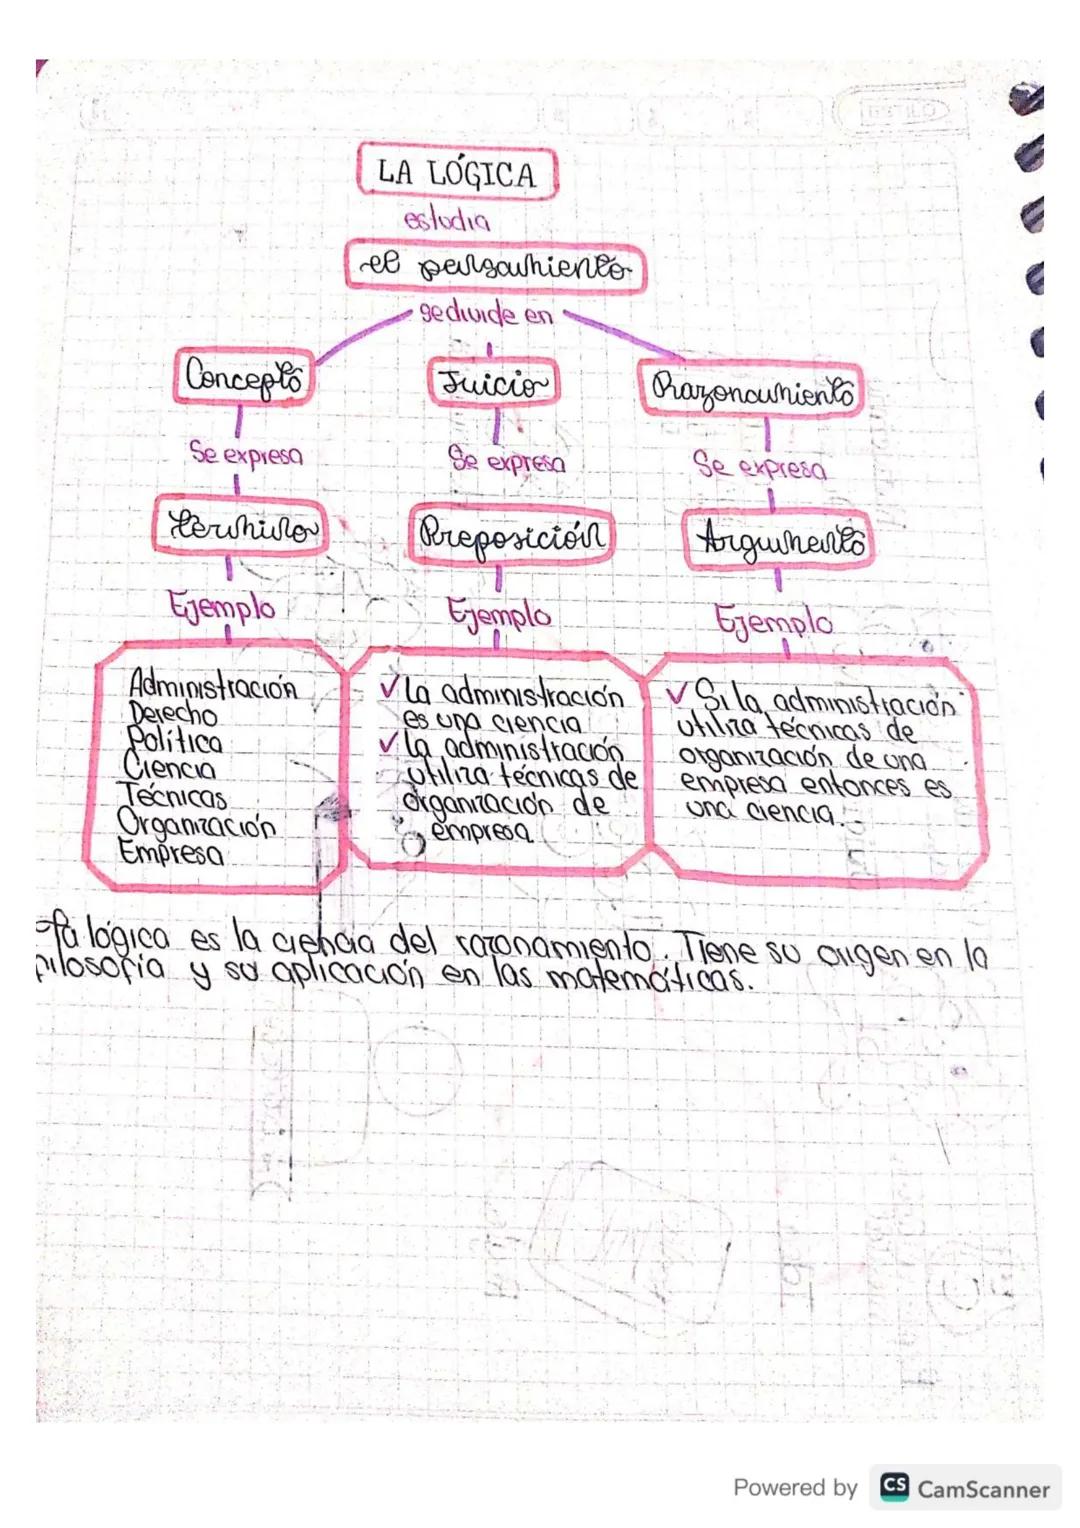 LA LÓGICA
estudia
el pensamiento
se divide en
Concepto
Juicio
Razonamiento
Se expresa
Se expresa
Se expresa
término
Preposición
Argumento
Ejemplo
Ejemplo
Ejemplo
Administración
Derecho
Política
Ciencia
Técnicas
Organización
Empresa
✓ La administración
es una ciencia
✓ la administración
utiliza técnicas de
organización de
empresa
✓ Si la administración
utiliza técnicas de
organización de una
empresa entonces es
una ciencia.
la lógica es la ciencia del razonamiento. Tiene su origen en la
filosofía y su aplicación en las matemáticas.
Powered by CS CamScanner